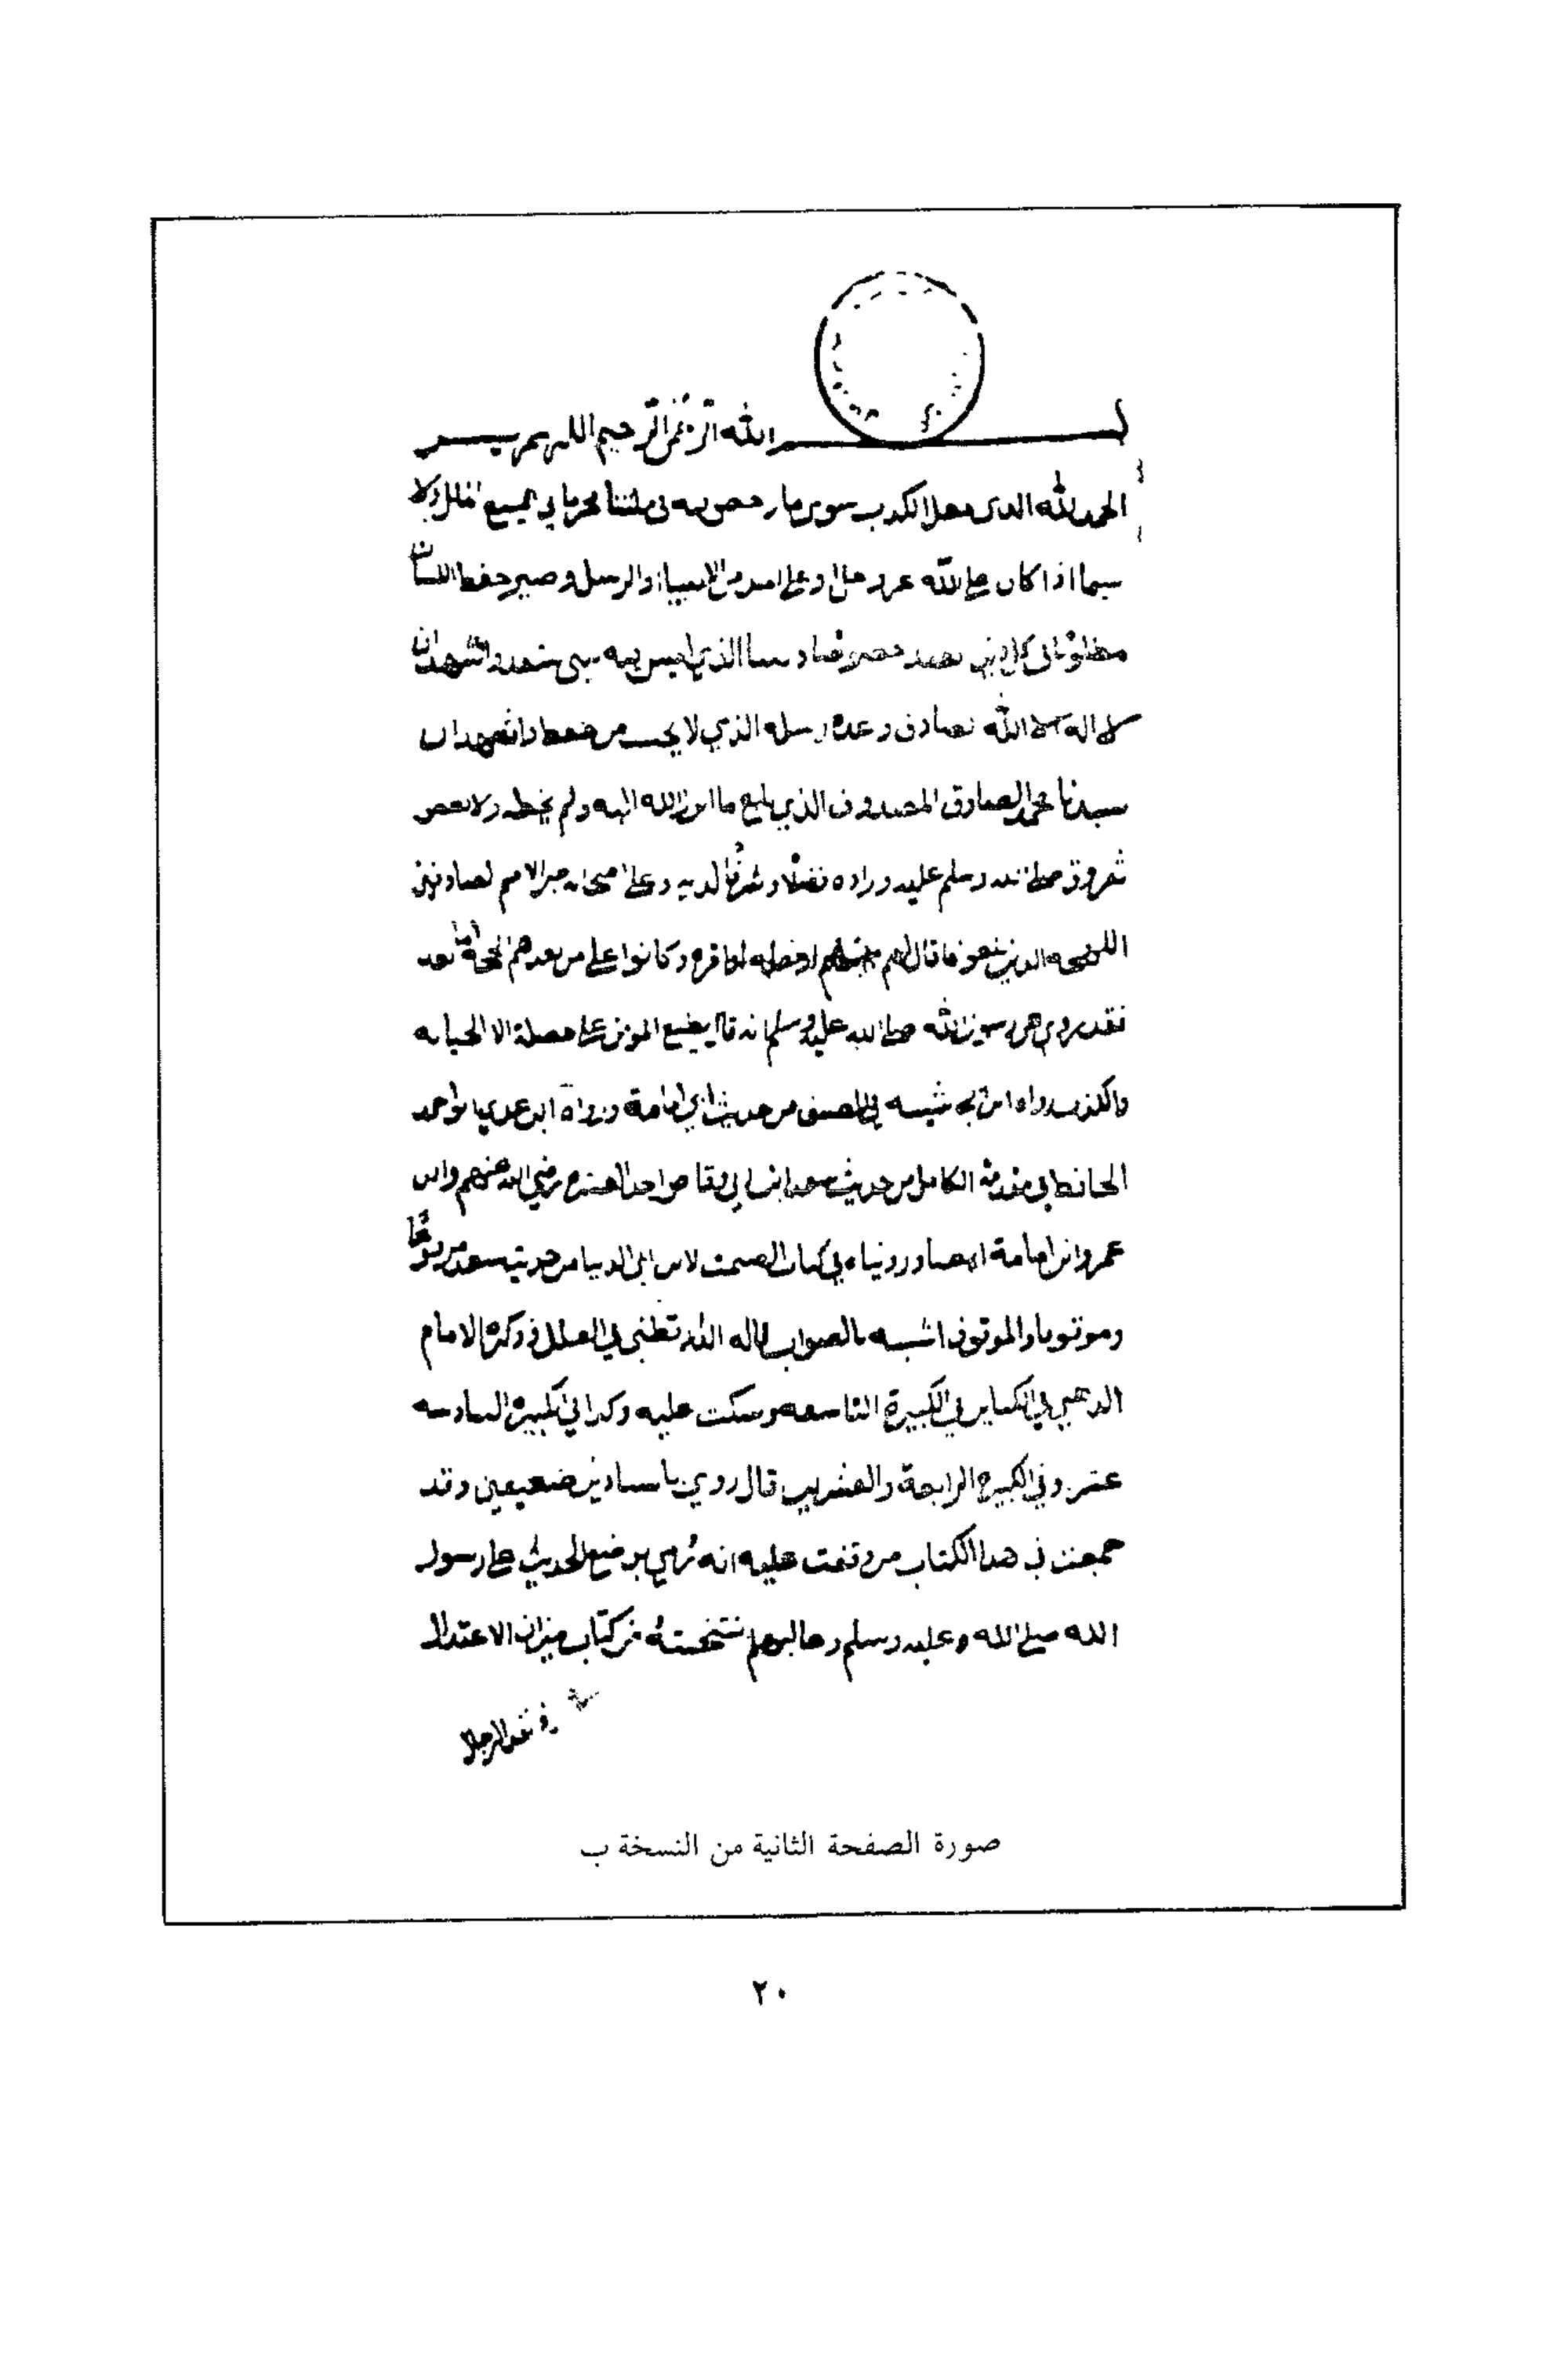 بسم الله الرحمن الرحيم اللهم يسر
الحمد لله الذي جعل الكذب سوى ما رخص به في ملتنا محرما في جميع الملل ولا
سيما اذا كان على الله عز وجل وعلى احد من الانبياء والرسل وصير حفظ اللسان
مطلوبا في كل
لا اله الا الله صادق وعده رسله الذي لا يجب من
سيدنا محمد الصادق المصدوق الذي بلغ ما انزل الله اليه ولم يخط ولا نقص
صلى الله وسلم عليه وزاده فضلا وشرفا لديه وعلى اصحابه خير الامم
الذين قال لهم وكانوا على من بعدهم الحجة اما بعد
فقد روي عن رسول الله صلى الله عليه وسلم انه قال يطبع المومن على خصلة الا الخيانة
والكذب رواه ابن ابي شيبة في المصنف من حديث ابي امامة ورواه ابن عدي ابو احمد
الحافظ في مقدمة الكامل من حديث سعد ابن ابي وقاص احد العشرة رضي الله عنهم وابن
عمر وابي امامة ايضا وروينا في كتاب الصمت لابن ابي الدنيا من حديث سعد مرفوعا
وموقوفا والموقوف اشبه بالصواب قاله الدارقطني في العلل وذكره الامام
الذهبي في الكباير في الكبيرة التاسعة وسكت عليه وكذا في الكبيرة السادسة
عشر وفي الكبيرة الرابعة والعشرين قال روي باسنادين ضعيفين وقد
جمعت في هذا الكتاب من وقفت عليه انه رمي بوضع الحديث على رسول
الله صلى الله وعليه وسلم وغالبهم من كتاب ميزان الاعتدال
في نقد الرجال
صورة الصفحة الثانية من النسخة ب
٢٠